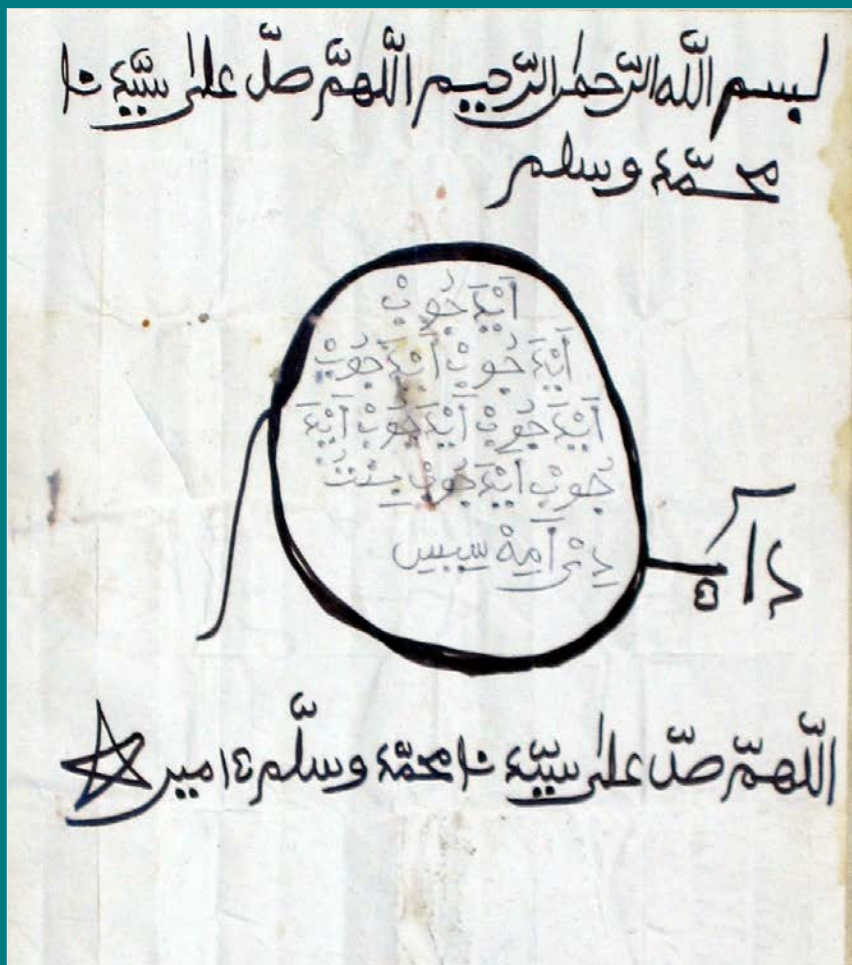 بسم اللّه الرّحمٰن الرّحيم اللّهمّ صلّ علىٰ سيّد نا
محمّد وسلم
اَيْدَ جُوبْ
اَيْدَ جُوبْ اَيْدَ جُوبْ
اَيْدَ جُوبْ اَيْدَ جُوبْ اَيْدَ
جُوبْ اَيْدَ جُوبْ بِنْتُ
اَمِهْ سِيسِ
اللّهمّ صلّ علىٰ سيّد نا محمّد وسلّم ءامين